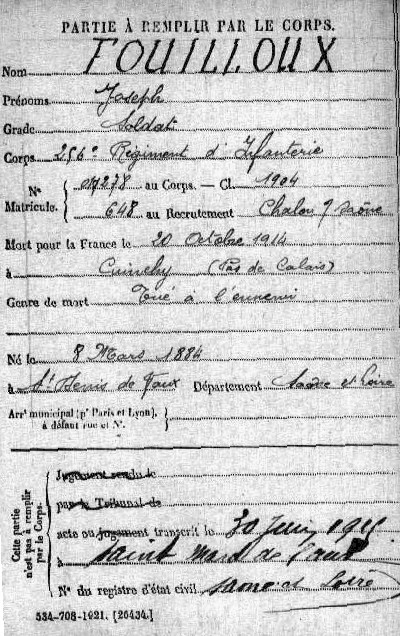 PARTIE À REMPLIR PAR LE CORPS.
Nom FOUILLOUX
Prénoms Joseph
Grade Soldat
Corps 256e Régiment d'Infanterie
N° Matricule. { 017278 au Corps. — Cl. 1904
648 au Recrutement Chalon s/ Saône
Mort pour la France le 20 Octobre 1914
à Cuinchy (Pas de Calais)
Genre de mort Tué à l'ennemi
Né le 8 Mars 1884
à St Denis de Vaux Département Saône et Loire
Arrt municipal (pr Paris et Lyon),
à défaut rue et N°.
Cette partie n'est pas à remplir par le Corps.
Jugement rendu le
par le Tribunal de
acte ou jugement transcrit le 30 Juin 1915
à Saint de Vaux
N° du registre d'état civil Saone et Loire
534-708-1921. [26434.]